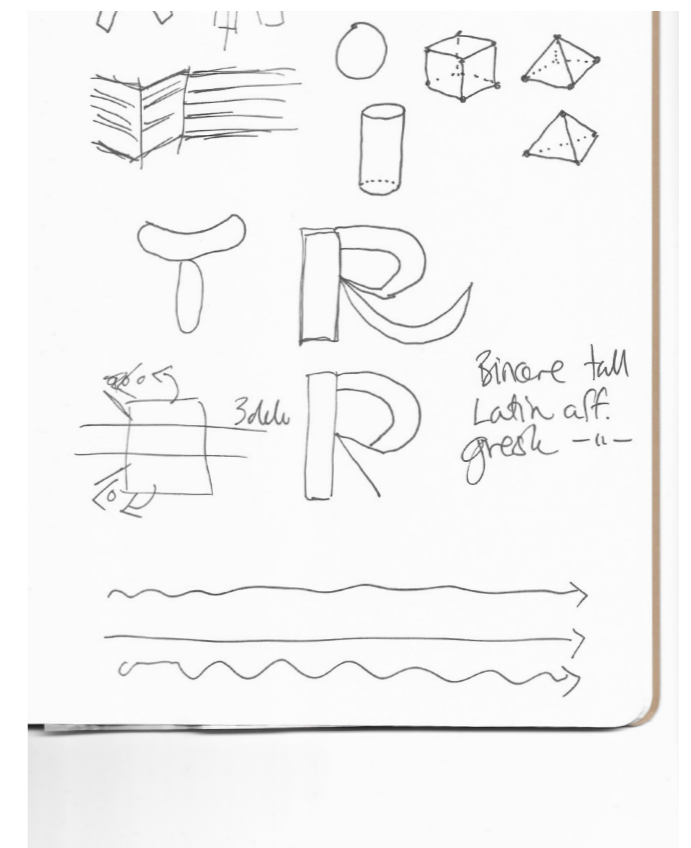 T R
3dele
R
Binære tall
Latin alf.
gresk —"—